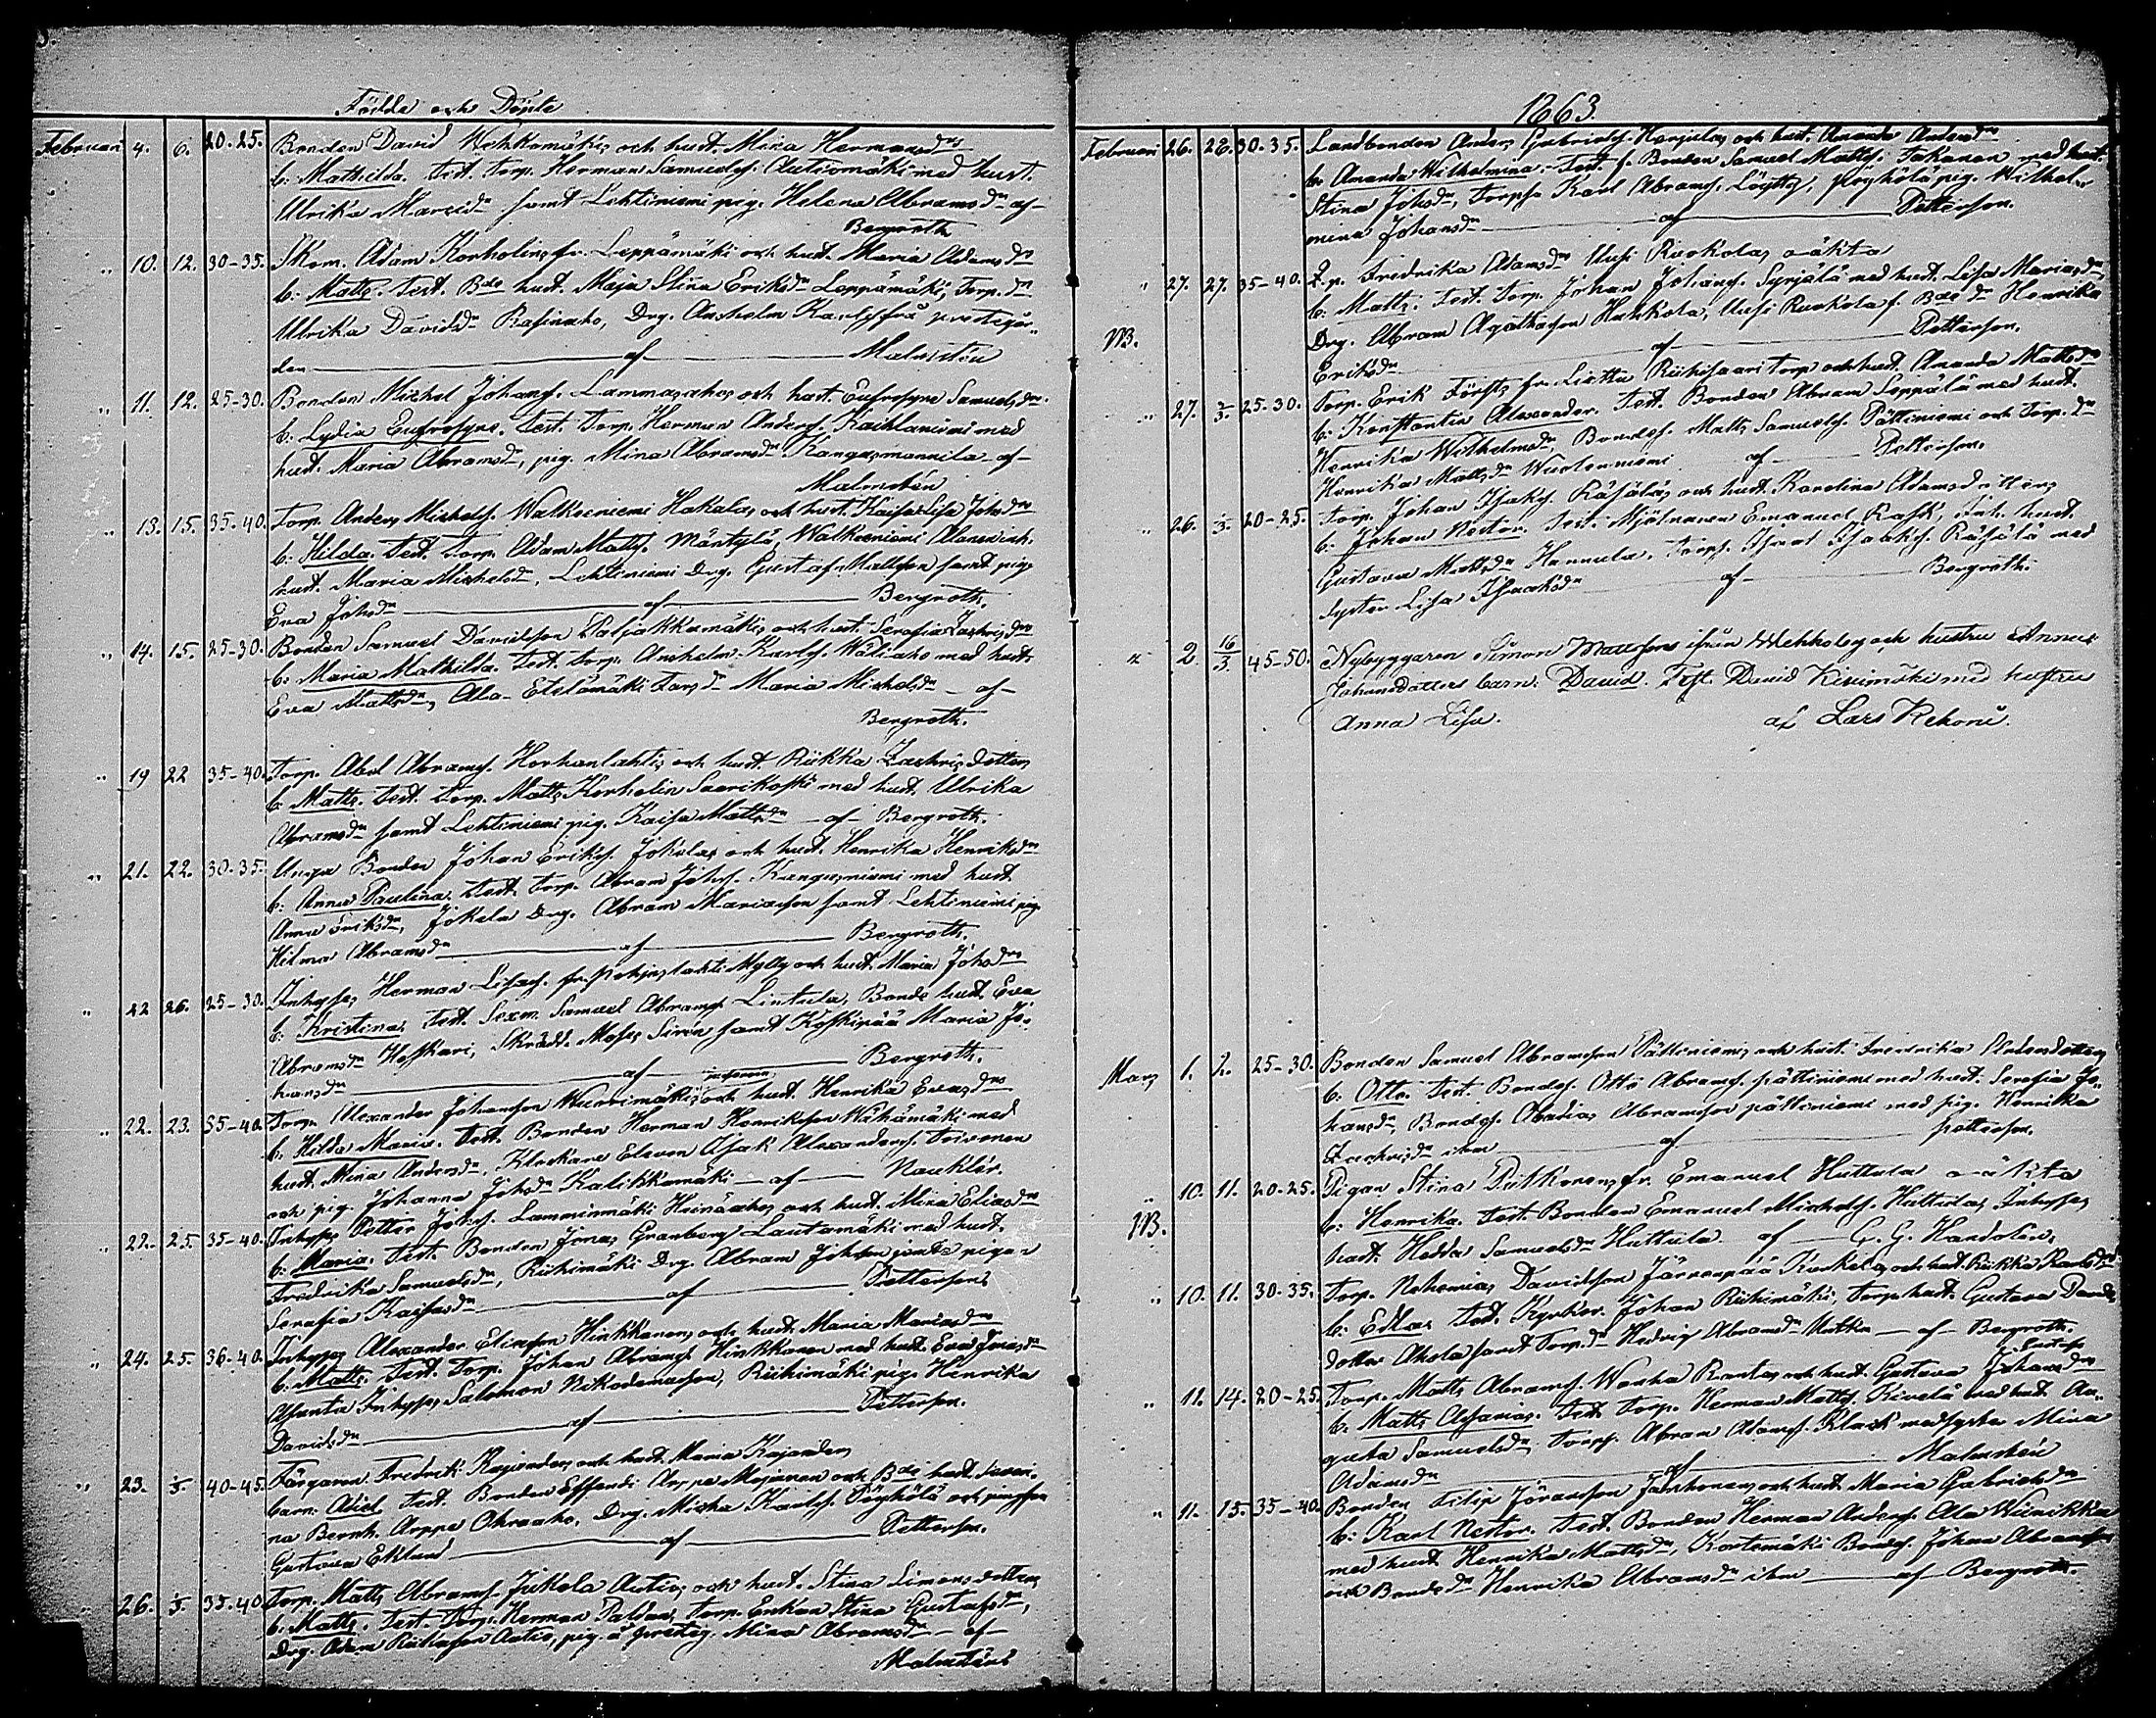 Födde och Döpte
Februari 4. 6. 20-25. Bonden David Wehkomäkis och hust. Mina Hermansdrs
b: Mathilda. Test. Torp. Herman Samuelss. Autiomäki med hust.
Ulrika Mariædr samt Lehtiniemi pig. Helena Abramsdr af
Bergroth
" 10. 12. 30-35. Skom. Adam Korholins fr. Leppämäki och hust. Maria Adamsdrs
b: Matts. Test. Bde hust. Maja Stina Eriksdr Leppämäki, Torp.dr
Ulrika Davidsdr Rasinaho, Drg. Anshelm Karlss frå prestgår-
den af Malmstén
" 11. 12. 25-30. Bonden Michel Johanss. Lammasahos och hust. Eufrosyne Samuelsdrs
b: Lydia Eufrosyne. Test. Torp. Herman Anderss. Kaihlaniemi med
hust. Maria Abramsdr, pig. Mina Abramsdr Kangasmannila af
Malmstén
" 13. 15. 35-40. Torp. Anders Michelss. Walkeeniemi Hakalas och hust. Kaisa Lisa Johsdrs
b: Hilda. Test. Torp. Adam Mattss. Mäntylä, Walkeeniemi
hust. Maria Michelsdr, Lehtiniemi Drg. Gustaf Mattsson samt pig.
Eva Johsdr af Bergroth.
" 14. 15. 25-30. Bonden Samuel Davidsson Paljakkamäkis och hust. Serafia Zachrisdrs
b: Maria Mathilda. Test. Torp. Anshelm Karlss. Wäliaho med hust.
Eva Mattsdr, Ala-Etelämäki Torp.dr Maria Michelsdr af
Bergroth.
" 19 22 35-40. Torp. Abel Abramss. Horhanlahtis och hust. Riikka Zachrisdotters
b: Matts. Test. Torp. Matts Korholin Saarikoski med hust. Ulrika
Abramsdr samt Lehtiniemi pig. Kaisa Mattsdr af Bergroth.
" 21. 22. 30-35. Unga Bonden Johan Erikss. Jokelas och hust. Henrika Henriksdrs
b: Anna Paulina. Test. Torp. Abram Johss. Kangasniemi med hust.
Anna Eriksdr, Jokela Drg. Abram Mariasson samt Lehtiniemi pig.
Hilma Abramsdr af Bergroth.
" 22 26. 25-30. Inhyses Herman Lisass. fr. Pohjaslahti Mylly och hust. Maria Johsdrs
b: Kristina, Test. Sexm. Samuel Abramss. Lintula, Bonde hust. Eva
Abramsdr Hoskari, Skrädd. Moses Sirén samt Koskipää Maria Jo-
hansdr af Bergroth.
" 22. 23. 35-40. Torp. Alexander Johansson Wuorimäkis och hust. Henrika Evasdrs
b: Hilda Maria. Test. Bonden Herman Henriksson Wähämäki med
hust. Mina Andersdr, Klockare Eleven Isak Alexanderss. Toivonen
och pig. Johanna Johsdr Kalikkamäki af Nauklér.
" 22. 25. 35-40. Inhyses Petter Johss. Lamminmäki Heinäahos och hust. Mina Eliasdrs
b: Maria. Test. Bonden Jonas Granberg Lautamäki med hust.
Fredrika Samuelsdr, Riihimäki Drg. Abram Johsson jemte pigan
Serafia Kaisasdr af Petterson.
" 24. 25. 36-40. Inhyses Alexander Eliasson Hinkkanens och hust. Maria Mariasdrs
b: Matts. Test. Torp. Johan Abramss. Hinkkanen med hust. Eva Jonasdr
Inhyses Salomon Nikodemusson, Riihimäki pig. Henrika
Davidsdr af Petterson.
" 23. 1/3. 40-45. Färgaren Fredrik Kajanders och hust. Maria Kajanders
barn: Abiel. Test. Bonden Effendi Arppe Mojanen och Bde hust. Severi-
na Bernh. Arppe Ohraaho, Drg. Micha Karlss. Pöyhölä och pigan
Gustava Eklund af Petterson.
" 26. 1/3. 35-40 Torp. Matts Abramss. Jukola Autios och hust. Stina Simonsdotters
b: Matts. Test. Torp. Herman Paldan, Torp. Enkan Stina Gustafsdr,
Drg. Adam Autio, pig. å presteg. Mina Abramsdr af
Malmstén
1863.
Februari 26. 28. 30-35. Landbonden Anders Gabrielss. Harjulas och hust. Amanda Andersdrs
b: Amanda Wilhelmina. Test. f. Bonden Samuel Mattss. Takanen med hust.
Stina Johsdr, Torps. Karl Abramss. Löytty, Pöyhölä pig. Wilhel-
mina Johansdr af Petterson.
" 27. 27. 35-40. L.p. Fredrika Adamsdrs Uusi Ruokolas o-äkta
b: Matts. Test. Torp. Johan Johanss. Syrjälä med hust. Lisa Mariasdr,
NB. Drg. Abram Agathasson Huhkola, Uusi Ruokola f. Bde dr Henrika
Eriksdr af Petterson.
" 27. 2/3. 25-30. Torp. Erik Försts fr. Liettu Riihisaari torp och hust. Amanda Mattsdrs
b: Konstantin Alexander. Test. Bonden Abram Leppälä med hust.
Henrika Wilhelmsdr, Bondes. Matts Samuelss. Pättiniemi och Torp.dr
Henrika Mattsdr Wuolenniemi af Petterson.
" 26. 1/3. 20-25. Torp. Johan Isaks. Räsäläs och hust. Karolina Adamsdotters
b: Johan Nestor. Test. Mjölnaren Emanuel Rask, Inh. hust.
Gustava Mattsdr Hannula, Torps. Isaak Isaaks. Räsälä med
syster Lisa Isaaksdr af Bergroth.
" 2 16/3. 45-50. Nybyggaren Simon Mattssons ifrån Wehkoleg och hustru Annas
Johansdotters barn: David. Test. David Kivimäki med hustru
Anna Lisa. af Lars Rehoni.
Mars 1. 2. 25-30. Bonden Samuel Abramsson Pättiniemis och hust. Fredrika Andersdotters
b: Otto. Test. Bondes. Otto Abramss. Pättiniemi med hust. Serafia Jo-
hansdr, Bondes. Abramsson Pättiniemi med pig. Henrika
Zachrisdr ibm af Petterson.
" 10. 11. 20-25. Pigan Stina Pitkänens fr. Emanuel Huttula o-äkta
NB. b: Henrika. Test. Bonden Emanuel Michelss. Huttula, Inhyses
hust. Hedda Samuelsdr Huttula. af G. G. Handolin.
" 10. 11. 30-35. Torp. Nehemias Davidsson Järvenpää Kunkelas och hust. Riikka Karlsdrs
b: Edla. Test. Kyrkov. Johan Riihimäki, Torp. hust. Gustava Davids-
dotter Ahola samt Torp.dr Hedvig Abramsdr Untka af Bergroth.
" 11. 14. 20-25. Torp. Matts Abramss. Wanha Rantas och hust. Gustava Johansdrs
b: Matts Asarias. Test. Torp. Herman Mattss. Kivelä med hust. Au-
gusta Samuelsdr, Torps. Abram Adamss. Klack med syster Mina
Adamsdr af Malmstén
" 11. 15. 35-40. Bonden Filip Göransson Janhonens och hust. Maria Gabrielsdrs
b: Karl Nestor. Test. Bonden Herman Anderss. Ala Wiinikka
med hust. Henrika Mattsdr, Kortemäki Bondes. Johan Abramsson
och Bonde dr Henrika Abramsdr ibm af Bergroth.